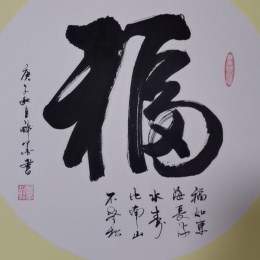 福
福如東
海長流
水壽
比南山
不老松
庚子秋月
書